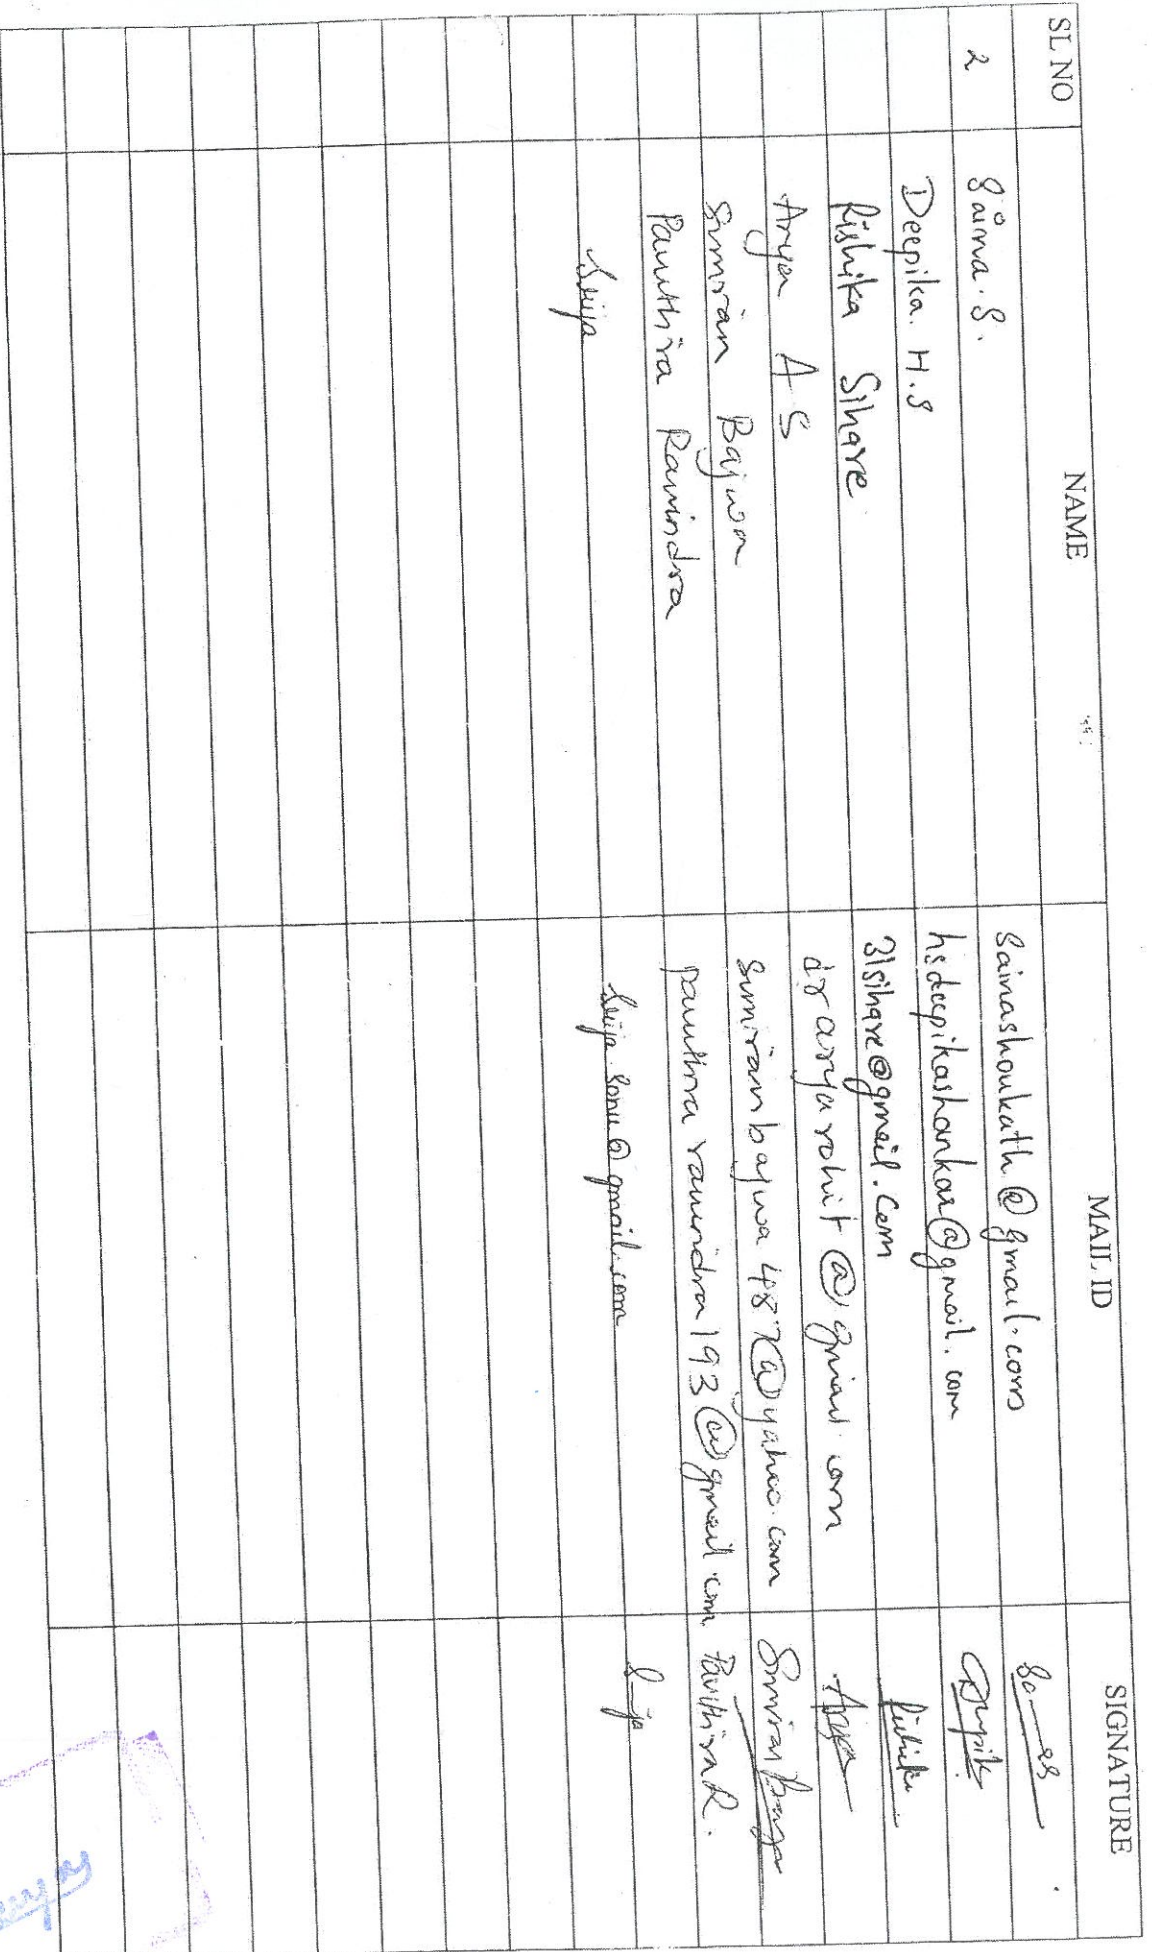 SL NO NAME MAIL ID SIGNATURE
2 Saina. S. sainashoukath@gmail.com
Deepika. H.S hsdeepikashankar@gmail.com
Rishika Sihare 31sihare@gmail.com Rishika
Arya A S dr aryarohit@gmail.com Arya
Simran Bajwa simranbajwa487@yahoo.com Simran
Pavithra Ravindra pavithra ravindra193@gmail.com Pavithra R.
@gmail.com